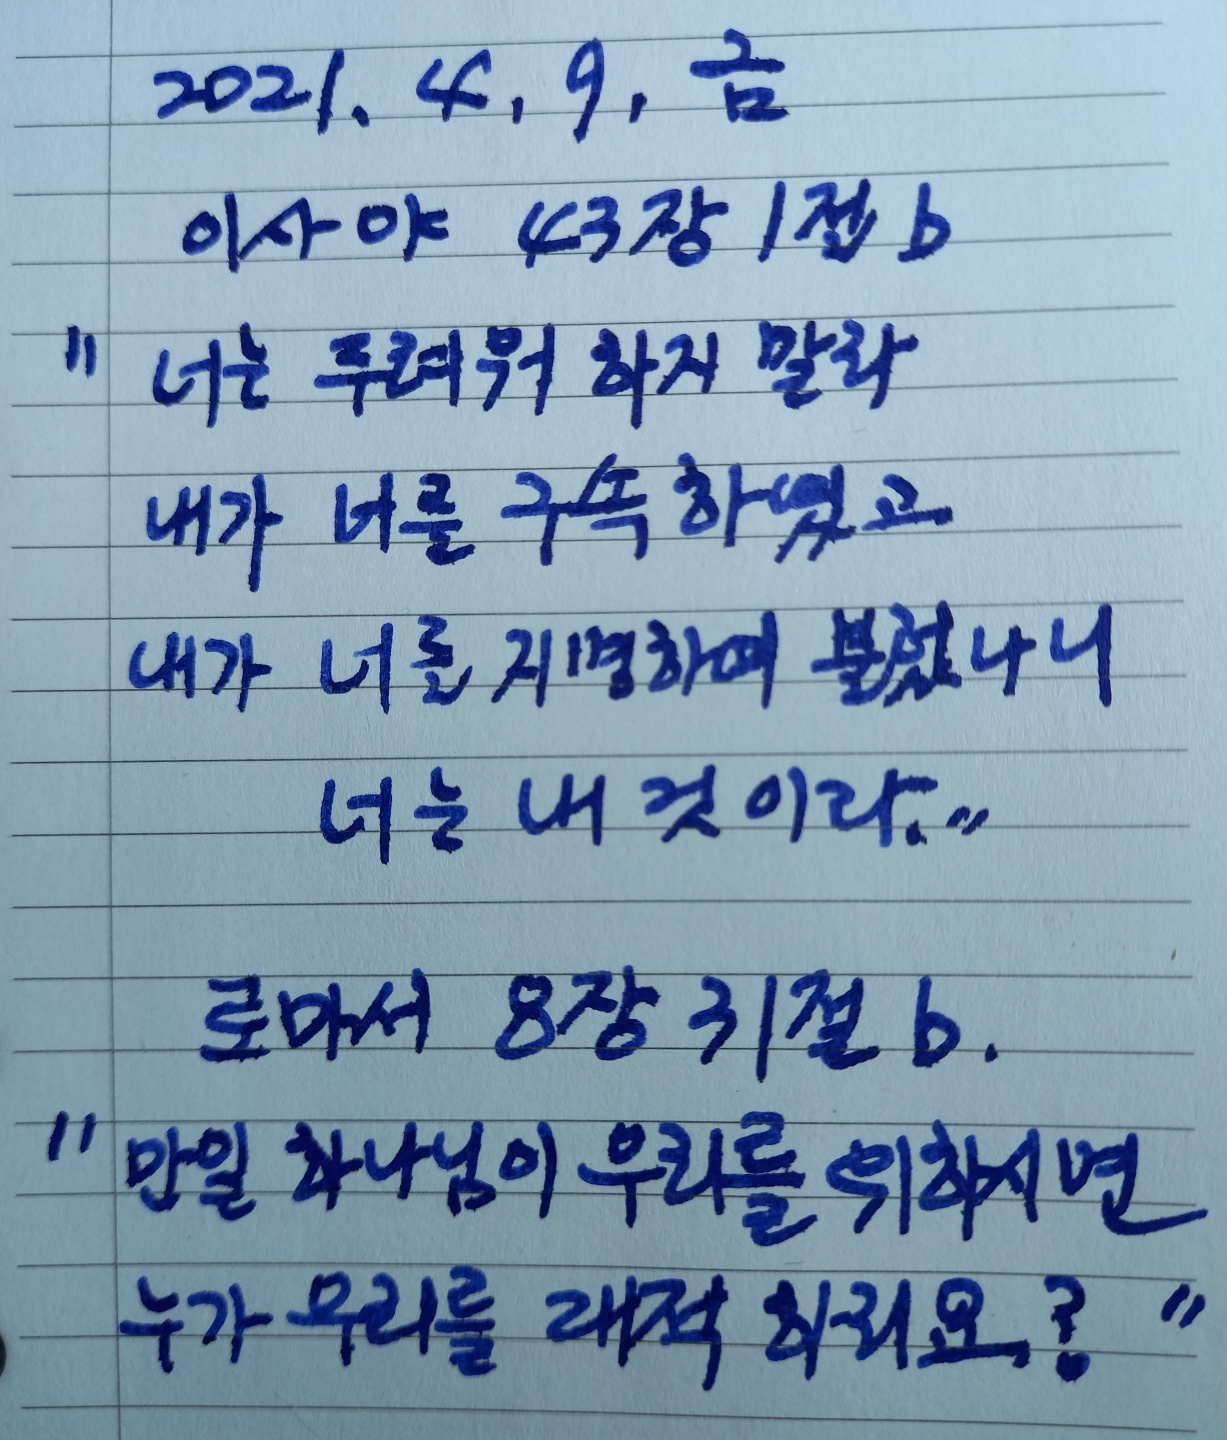 2021. 4. 9. 금
이사야 43장 1절 b
" 너는 두려워 하지 말라
내가 너를 구속 하였고
내가 너를 지명하여 불렀나니
너는 내 것이라."
로마서 8장 31절 b.
" 만일 하나님이 우리를 위하시면
누가 우리를 대적 하리요? "